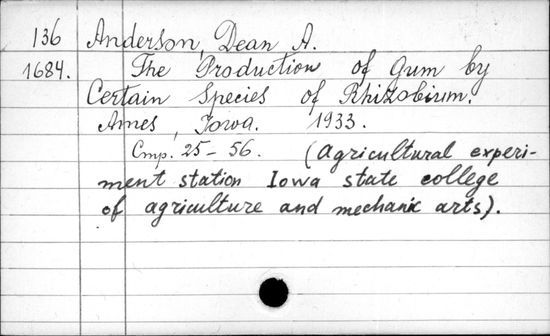 136 Anderson, Dean A.
1684. The Production of Gum by
Certain Species of Rhizobium.
Ames, Iowa. 1933.
Стр. 25-56. (Agricultural experi-
ment station Iowa state college
of agriculture and mechanic arts).